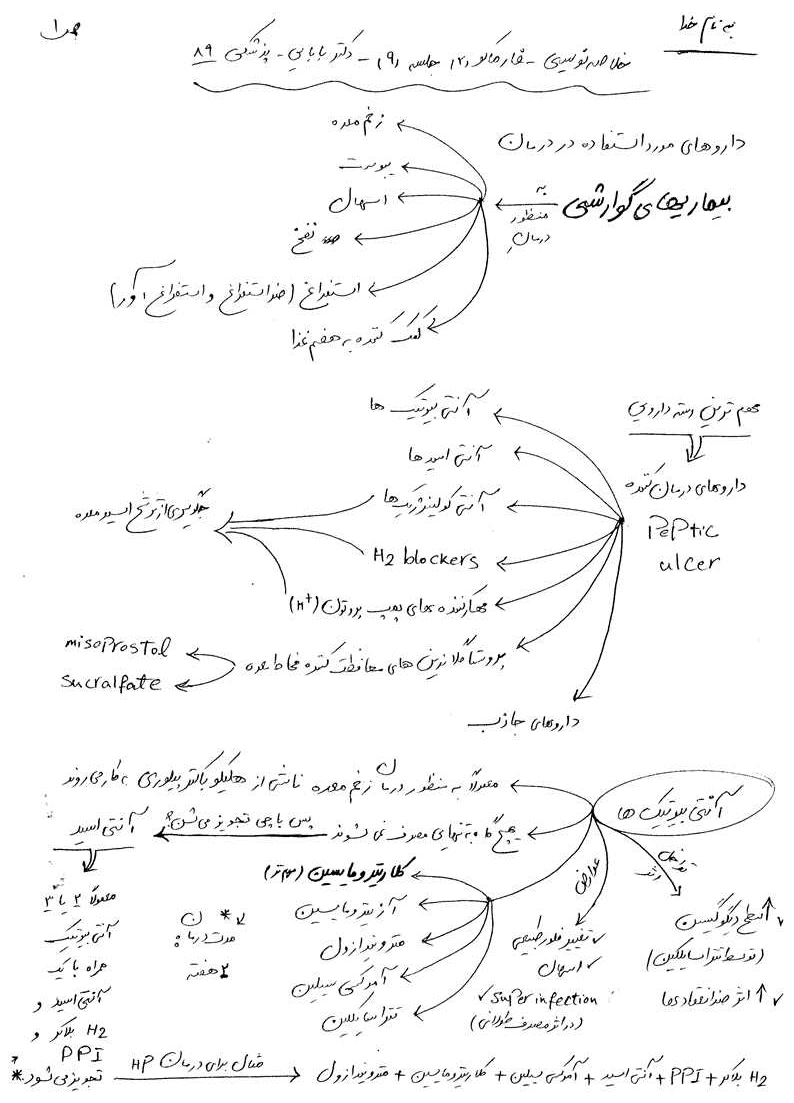 به نام خدا
ص ۱
خلاصه نویسی - فارماکو (۲) جلسه (۹) - دکتر بابایی - پزشکی ۸۹
داروهای مورد استفاده در درمان
بیماریهای گوارشی
به منظور درمانِ
زخم معده
یبوست
اسهال
ضد نفخ
استفراغ (ضد استفراغ و استفراغ آور)
کمک کننده به هضم غذا
مهم ترین دسته دارویی
داروهای درمان کننده
Peptic
ulcer
آنتی بیوتیک ها
آنتی اسیدها
آنتی کولینرژیک‌ها
H2 blockers
مهارکننده های پمپ پروتون (H+)
جلوگیری از ترشح اسید معده
پروستاگلاندین های محافظت کننده مخاط معده
misoprostol
sucralfate
داروهای جاذب
آنتی بیوتیک ها
معمولاً به منظور درمان زخم معده ناشی از هلیکوباکتر پیلوری بکار می روند
هیچ گاه به تنهایی مصرف نمی شوند
پس با چی تجویز می شن؟
آنتی اسید
کلاریترومایسین (مهم تر)
آزیترومایسین
مترونیدازول
آموکسی سیلین
تتراسایکلین
عوارض
تغییر فلور طبیعی
اسهال
super infection
(در اثر مصرف طولانی)
تداخل اثر
↑ سطح دیگوکسین
(توسط تتراسایکلین)
↑ اثر ضد انعقادها
* مدت درمان
۲ هفته
معمولاً ۲ یا ۳
آنتی بیوتیک
همراه با یک
آنتی اسید و
H2 بلاکر و
PPI
تجویز می شود. *
مثال برای درمان HP
H2 بلاکر + PPI + آنتی اسید + آموکسی سیلین + کلاریترومایسین + مترونیدازول